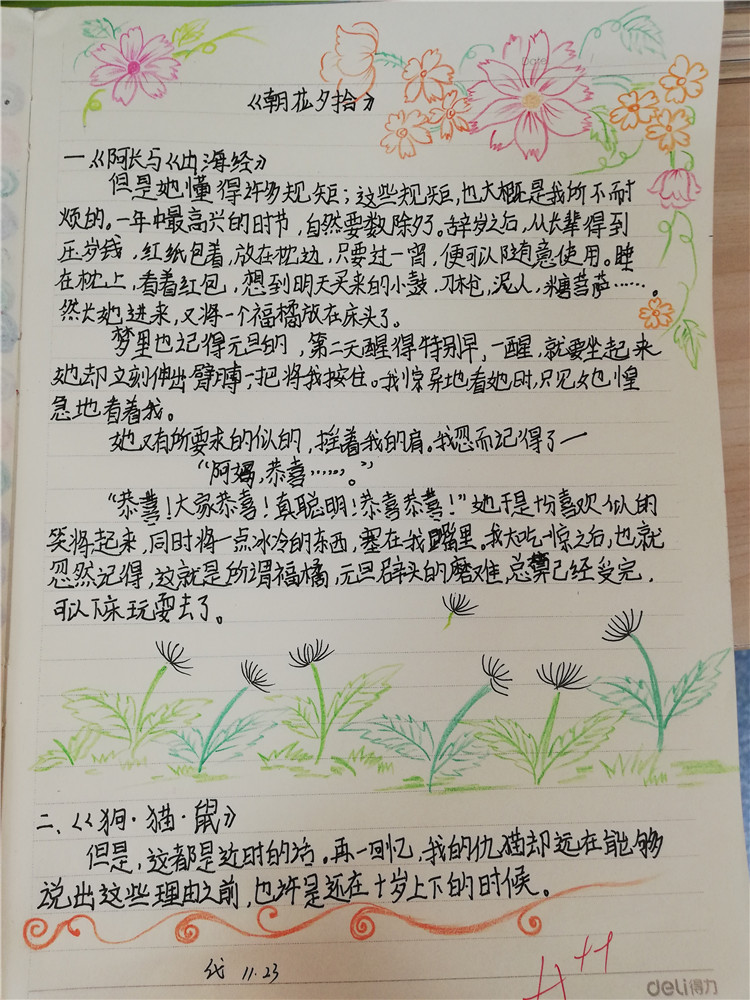 Date
《朝花夕拾》
一《阿长与《山海经》
但是她懂得许多规矩；这些规矩，也大概是我所不耐
烦的。一年中最高兴的时节，自然要数除夕了。辞岁之后，从长辈得到
压岁钱，红纸包着，放在枕边，只要过一宵，便可以随意使用。睡
在枕上，看着红包，想到明天买来的小鼓，刀枪，泥人，糖菩萨……。
然长她进来，又将一个福橘放在床头了。
梦里也记得元旦的，第二天醒得特别早，一醒，就要坐起来
她却立刻伸出臂膊，一把将我按住。我惊异地看她时，只见她惶
急地看着我。
她又有所要求的似的，摇着我的肩。我忽而记得了一
“阿妈，恭喜……。”
“恭喜！大家恭喜！真聪明！恭喜恭喜！”她于是十分喜欢似的
笑将起来，同时将一点冰冷的东西，塞在我嘴里。我大吃一惊之后，也就
忽然记得，这就是所谓福橘，元旦辟头的磨难，总算已经受完，
可以下床玩耍去了。
二、《狗·猫·鼠》
但是，这都是近时的话。再一回忆，我的仇猫却远在能够
说出这些理由之前，也许是还在十岁上下的时候。
11.23
A++
deli得力